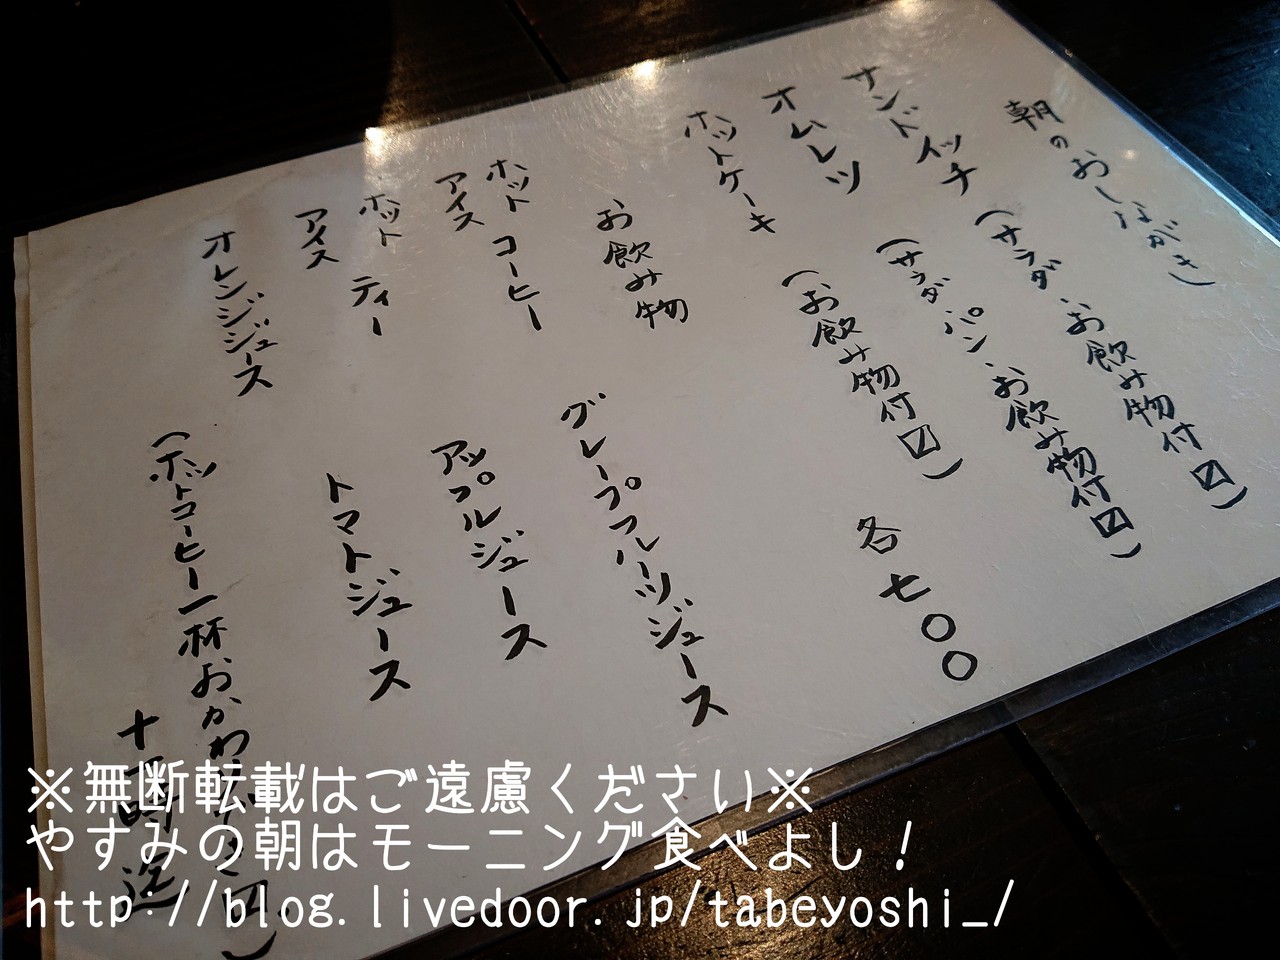 朝のおしながき
サンドイッチ(サラダ、お飲み物付〼)
オムレツ(サラダ、パン、お飲み物付〼)
ホットケーキ(お飲み物付〼)
各七〇〇
お飲み物
ホットコーヒー
アイス
ホットティー
アイス
オレンジジュース
グレープフルーツジュース
アップルジュース
トマトジュース
(ホットコーヒー一杯おかわり
※無断転載はご遠慮ください※
やすみの朝はモーニング食べよし!
http://blog.livedoor.jp/tabeyoshi_/